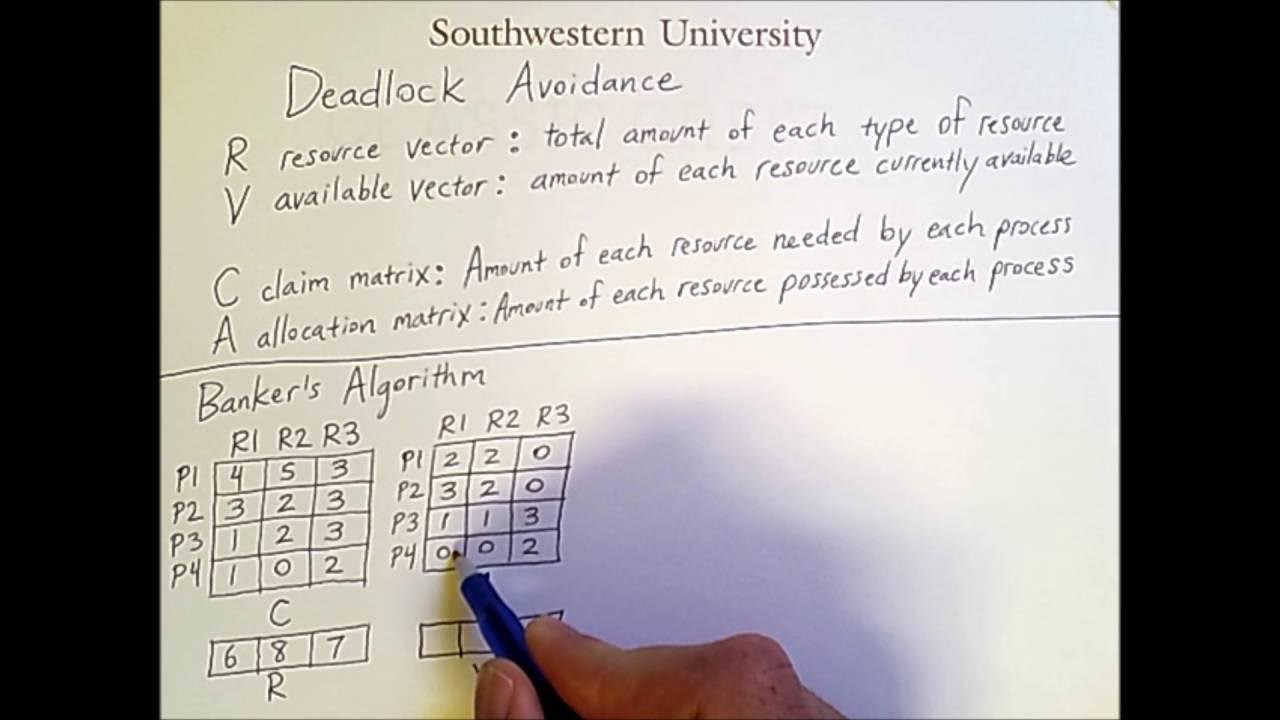 Southwestern University
Deadlock Avoidance
R resource vector: total amount of each type of resource
V available vector: amount of each resource currently available
C claim matrix: Amount of each resource needed by each process
A allocation matrix: Amount of each resource possessed by each process
Banker's Algorithm
R1 R2 R3
P1 4 5 3
P2 3 2 3
P3 1 2 3
P4 1 0 2
C
6 8 7
R
R1 R2 R3
P1 2 2 0
P2 3 2 0
P3 1 1 3
P4 0 0 2